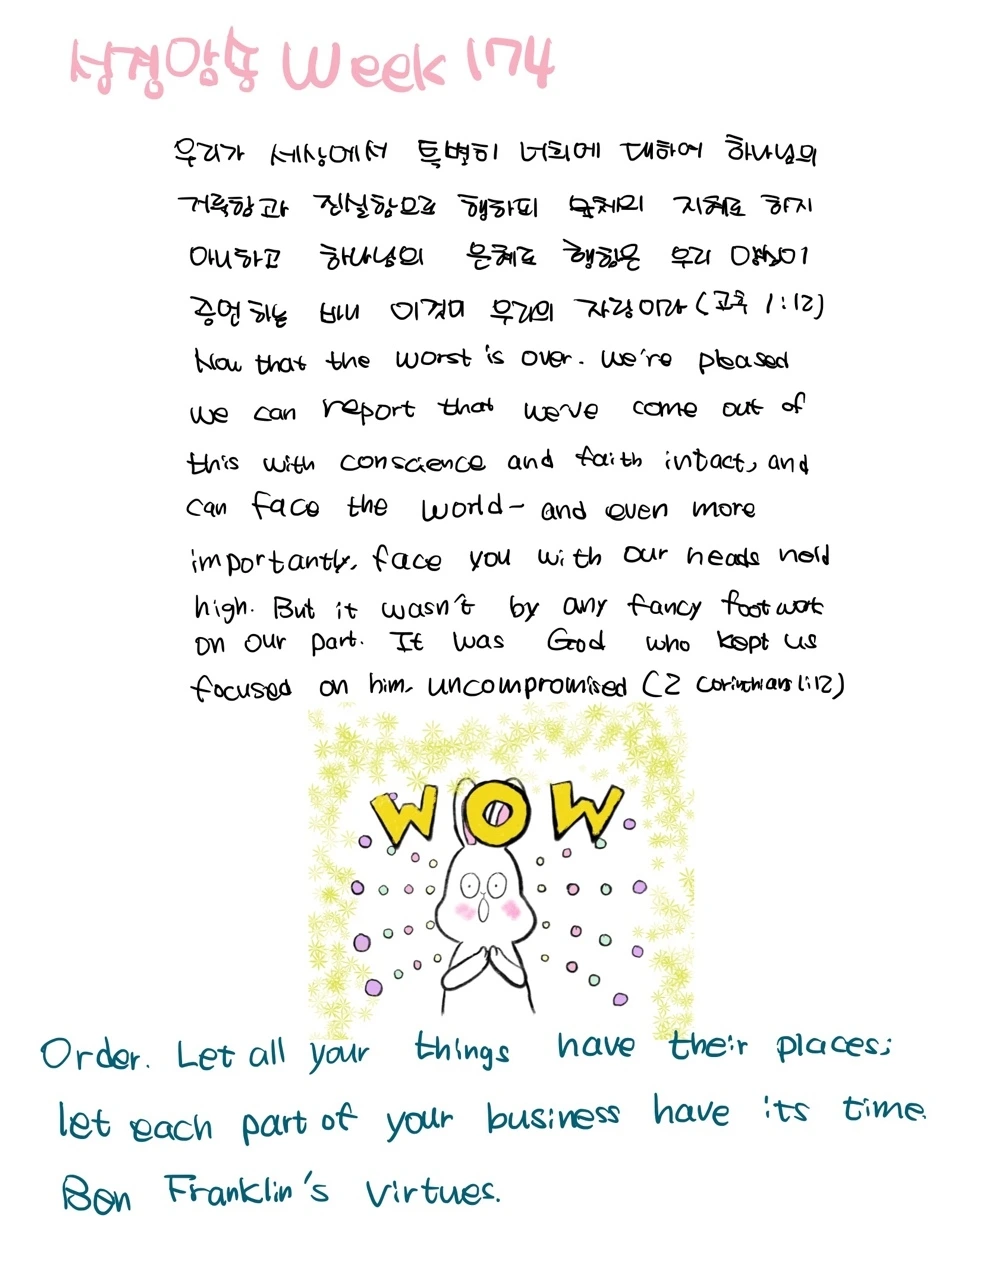 성경암송 Week 174
우리가 세상에서 특별히 너희에 대하여 하나님의
거룩함과 진실함으로 행하되 육체의 지혜로 하지
아니하고 하나님의 은혜로 행함은 우리 양심이
증언하는 바니 이것이 우리의 자랑이라 (고후 1:12)
Now that the worst is over. we're pleased
we can report that we've come out of
this with conscience and faith intact, and
can face the world- and even more
importantly, face you with our heads held
high. But it wasn't by any fancy footwork
on our part. It was God who kept us
focused on him, uncompromised (2 Corinthians 1:12)
WOW
Order. Let all your things have their places;
let each part of your business have its time.
Ben Franklin's virtues.